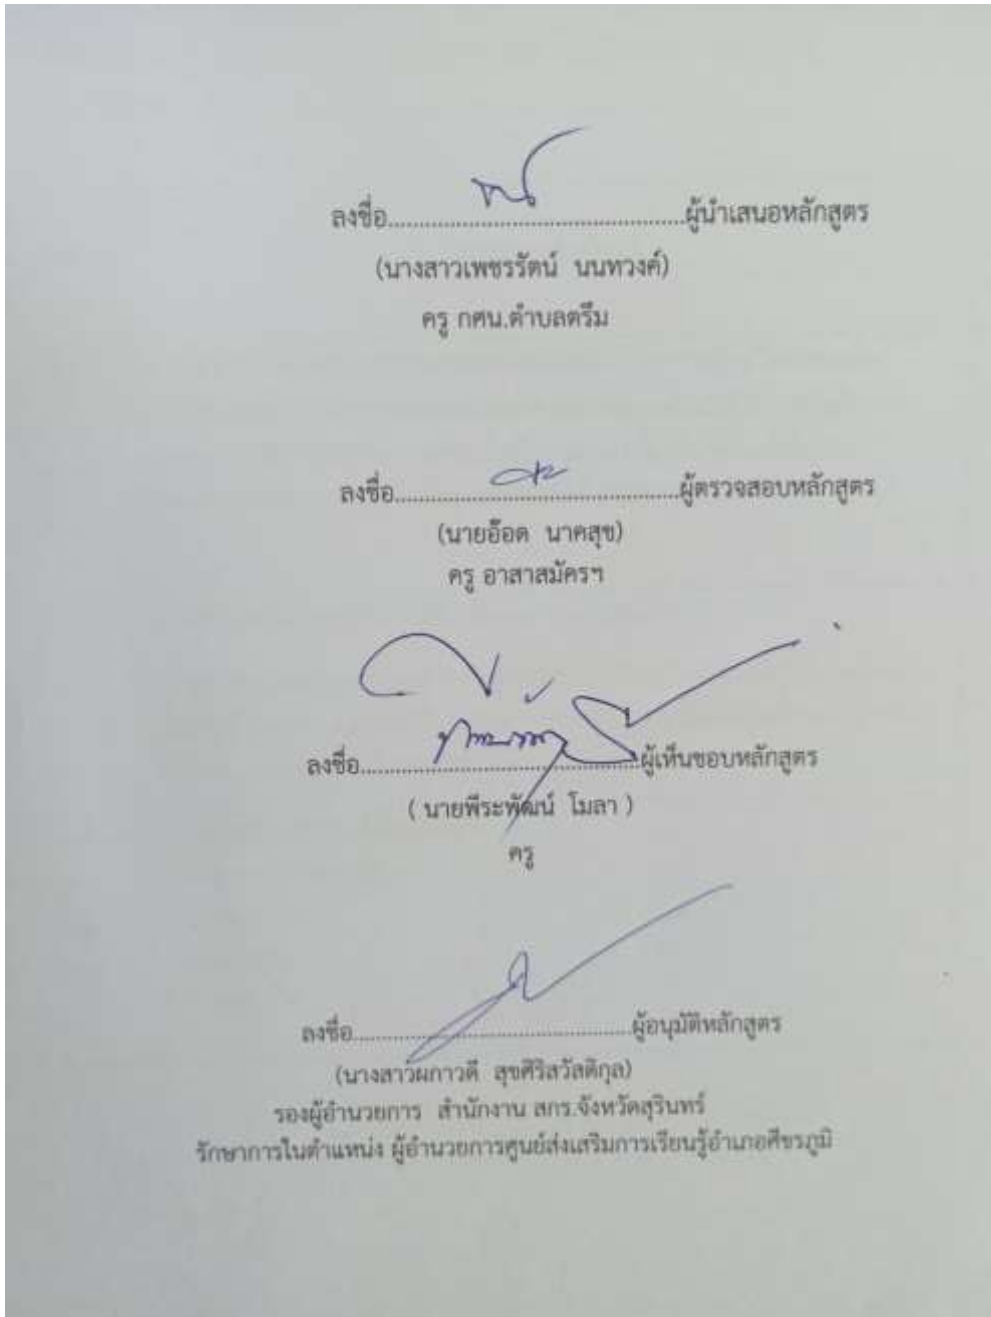 ลงชื่อ................................................ผู้นำเสนอหลักสูตร
(นางสาวเพชรรัตน์ นนทวงค์)
ครู กศน.ตำบลตรึม
ลงชื่อ................................................ผู้ตรวจสอบหลักสูตร
(นายอ๊อด นาคสุข)
ครู อาสาสมัครฯ
ลงชื่อ................................................ผู้เห็นชอบหลักสูตร
( นายพีระพัฒน์ โมลา )
ครู
ลงชื่อ................................................ผู้อนุมัติหลักสูตร
(นางสาวผกาวดี สุขศิริสวัสดิกุล)
รองผู้อำนวยการ สำนักงาน สกร.จังหวัดสุรินทร์
รักษาการในตำแหน่ง ผู้อำนวยการศูนย์ส่งเสริมการเรียนรู้อำเภอศีขรภูมิ